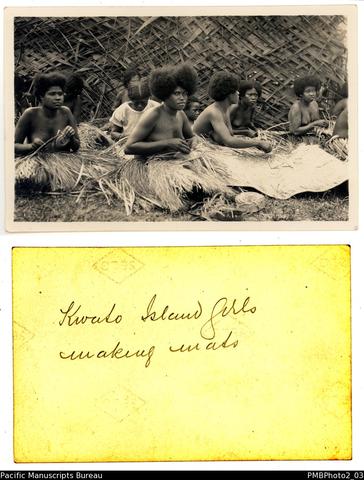 Kwato Island Girls
making mats
Pacific Manuscripts Bureau
PMBPhoto2_03